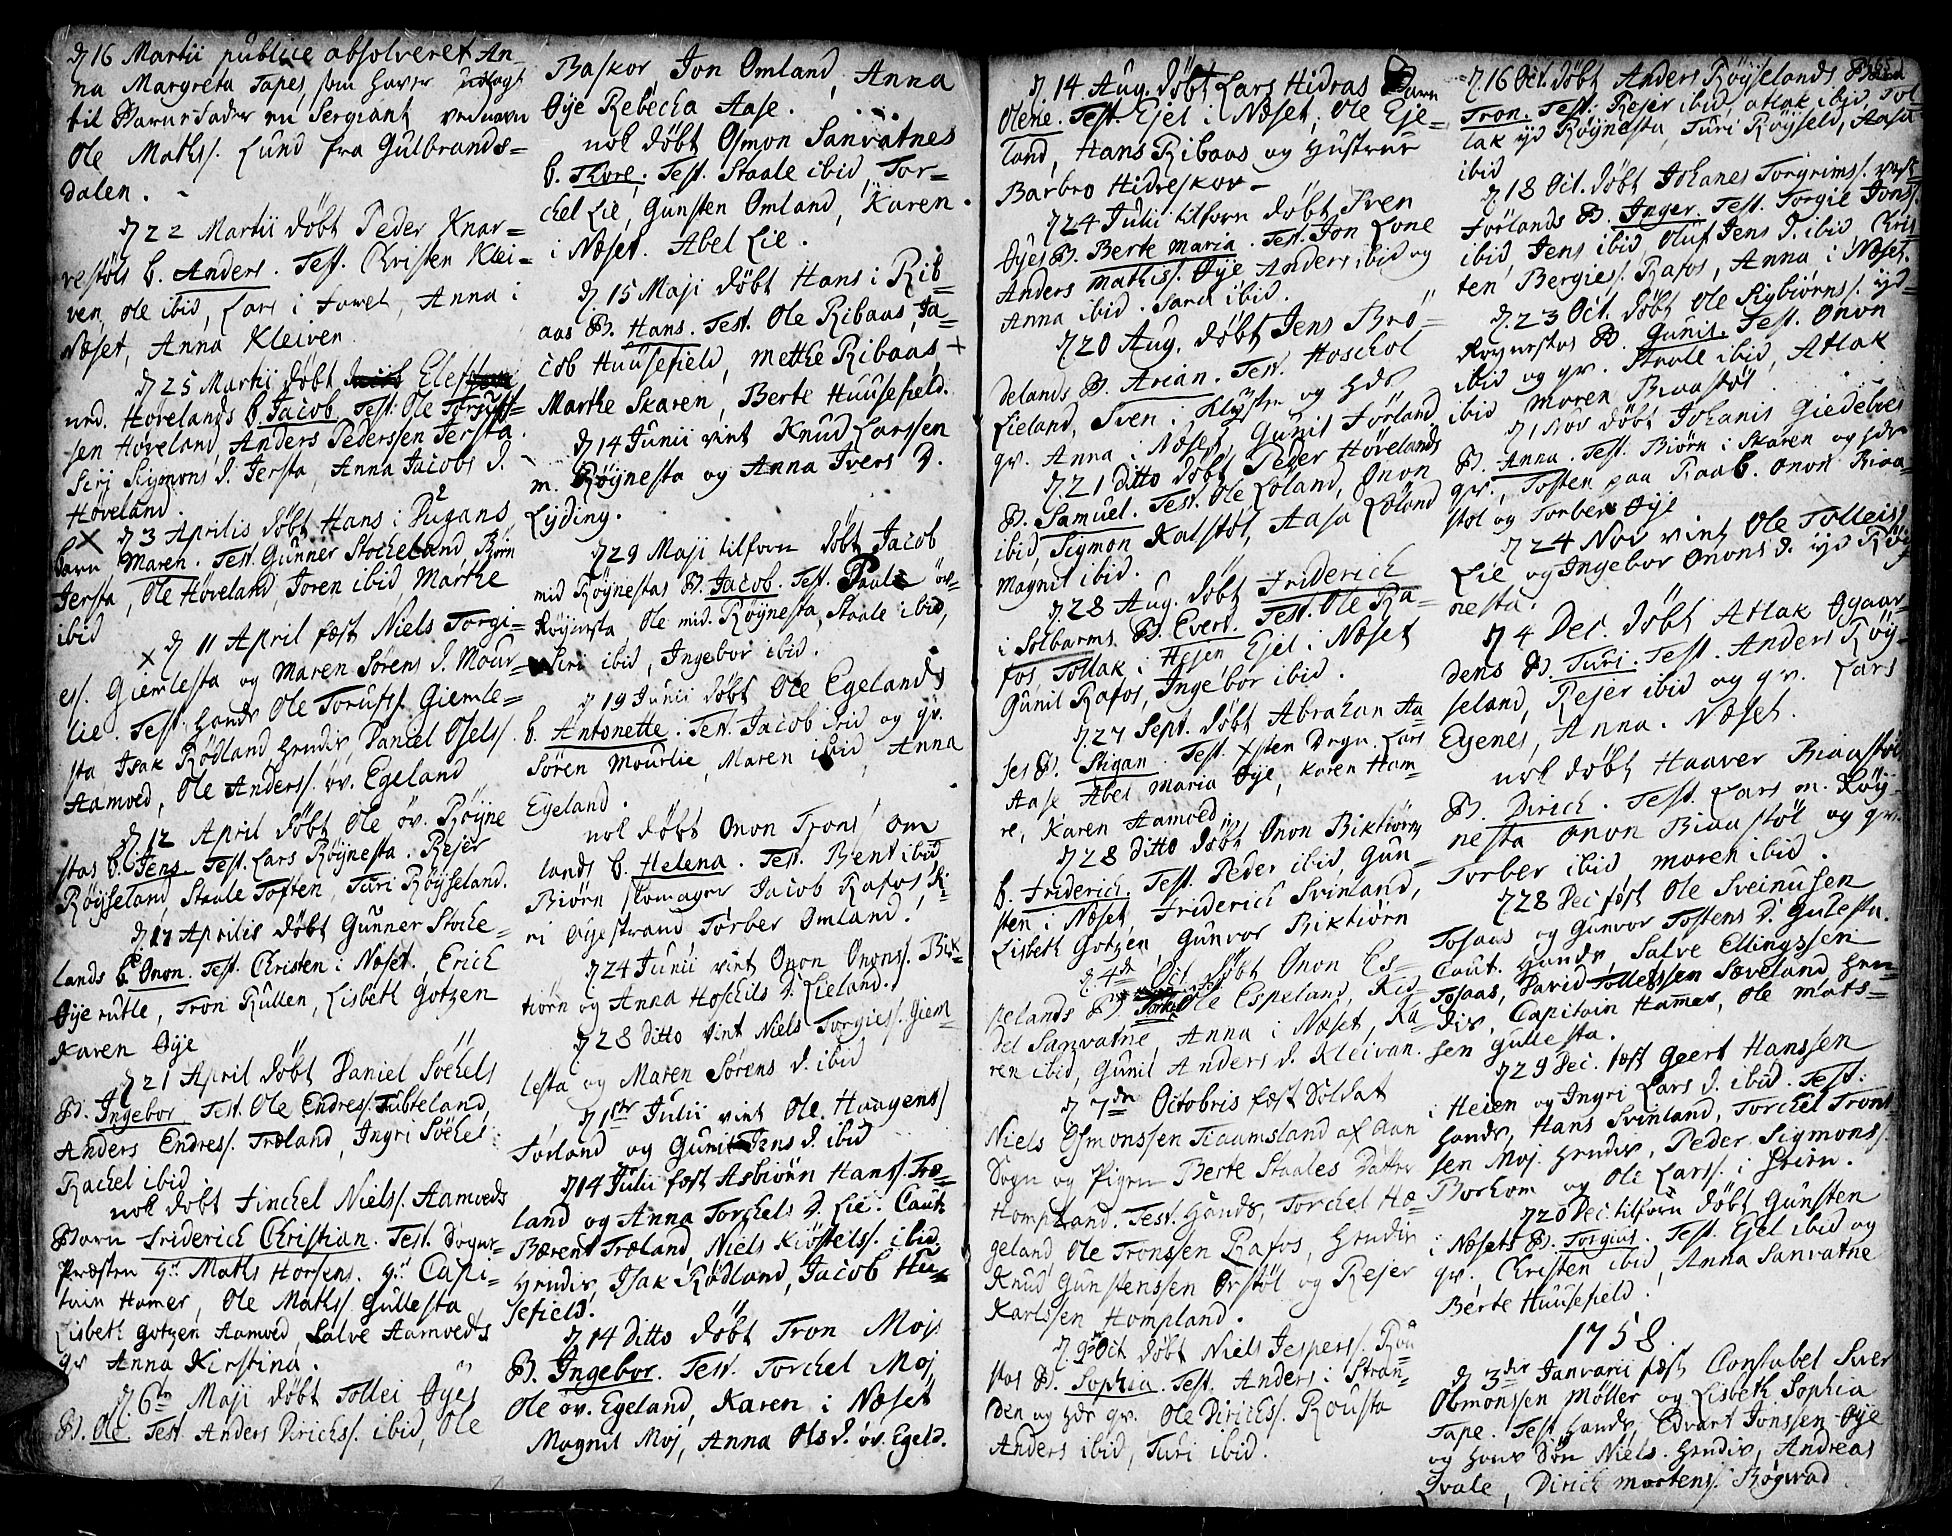 d 16 Martii publice absolveret An-
na Margreta Tapes, som haver udlagt
til Barnefader en Sergiant ved navn
Ole Mathss. Lund fra Gulbrands-
dalen.
d 22 Martii døbt Peder Knar-
restøls b. Anders. Test. Christen Klei-
ven, Ole ibid, Lars i Aaret, Anna i
Næset, Anna Kleiven.
d 25 Martii døbt Elef
Hovelands b. Jacob. Test. Ole Torufs-
sen Høveland, Anders Pederssen Jersta
Siri Sigmons d. Jersta, Anna Jacobs d.
Høveland.
d 3 Aprilis døbt Hans i Dugans
barn Maren. Test. Gunner Stocheland, Biørn
Jersta, Ole Høveland, Joren ibid, Marthe
ibid
x d 11 April fæst Niels Torgi-
ess. Giemlesta og Maren Sørens d. Mour-
lie. Test. hands Ole Torufss. Giemle-
sta Isak Rødland hendis, Daniel Osels.
Aamoed, Ole Anderss. øv. Egeland
d 12 April døbt Ole øv. Røyne
stas b. Jens. Test. Lars Røynesta. Rejer
Røysseland, Staale Toften, Turi Røysseland.
d 17 Aprilis døbt Gunner Stoche-
lands b. Onon. Test. Christen i Næset, Erich
Øye rutle, Tron Rullen, Lisbeth Gotzen
Karen Øye
d 21 April døbt Daniel Söchels
B. Ingebor. Test. Ole Endress. Tubteland,
Anders Endress. Træland, Ingri Söchel
Rachel ibid.
nok døbt Finchel Nielss. Aamoeds
Barn Friderich Christian. Test. Sogne-
Præsten Hr. Maths Horsens. Hr. Capi-
tain Hamer, Ole Mathss. Gullesta
Lisbeth Gotzen Aamoed, Salve Aamoeds
qv. Anna Kirstina.
d 6te Maji døbt Tollei Øyes
B. Ole. Test. Anders Dirichss. ibid, Ole
Baskor, Jon Omland, Anna
Øye Rebecha Aase.
nok døbt Osmon Sanvatnes
b. Thore. Test. Staale ibid, Tor-
chel Lie, Gunsten Omland, Karen
i Næset. Abel Lie.
d 15 Maji døbt Hans i Rib
aas B. Hans. Test. Ole Ribaas, Ja-
cob Huusefield, Methe Ribaas,
Marthe Skaren, Berte Huusefield.
d 14 Junii vint Knud Larssen
m. Røynesta og Anna Ivers d.
Lyding.
d 29 Maji tilforn døbt Jacob
mid Røynestas B. Jacob. Test. Paale øv-
Røynesta, Ole mid. Røynesta, Staale ibid,
Siri ibid, Ingebor ibid.
d 19 Junii døbt Ole Egelands
b. Antonette. Test. Jacob ibid og qv.
Søren Mourlie, Maren ibid, Anna
Egeland.
nok døbt Onon Trons Om
lands b. Helena. Test. Bent ibid,
Biørn skomager Jacob Rafos, Ki
ri Øyestrand Torber Omland.
d 24 Junii vint Onon Ononss. Bik
tiørn og Anna Hoschils d. Lieland.
d 28 ditto vint Niels Torgiess. Giem-
lesta og Maren Sørens d. ibid
d 1ste Julii vint Ole Haagenss
Førland og Gunil Jens d. ibid
d 14 Julii fæst Asbiørn Hanss. Træ-
land og Anna Torchels d. Lie. Caut.
Bærent Træland, Niels Kiøstelss. ibid.
Hendis, Isak Rødland, Jacob Hu-
sefield.
d 14 ditto døbt Tron Mojs
B. Ingebor. Test. Torchel Moj,
Ole øv. Egeland, Karen i Næset
Magnil Moj, Anna Ols d. øv. Egeld.
d. 14 Aug. døbt Lars Hidras Barn
Olene. Test. Ejel i Næset, Ole Eje-
land, Hans Ribaas og Hustrue
Barbro Hidreskor
d 24 Julii tilforn døbt Sven
Øyes B. Berte Maria. Test. Jon Lone
Anders Mathiss. Øye Anders ibid og
Anna ibid. Sara ibid.
d 20 Aug. døbt Jens Brö-
delands B. Arian. Test. Hoschol
Lieland, Sven i Klysen og hds
qv. Anna i Næset, Gunil Førland
d. 21 ditto døbt Peder Høvelands
B. Samuel. Test. Ole Loland, Onon
ibid, Sigmon Kalstøl, Aasa Loland
Magnil ibid.
d 28 Aug. døbt Friderich
i Solbarms B. Evert. Test. Ole Ra-
fos Tollak i Heien Ejel i Næset
Gunil Rafos, Ingebor ibid.
d. 27 Sept. døbt Abrahan Aa-
ses B. Stigan. Test. Degn. Lars
Aase Abel Maria Øye, Karen Ham-
re, Karen Aamoed
d 28 ditto døbt Onon Biktiørns
b. Friderich. Test. Peder ibid, Gun-
sten i Næset, Friderich Svinland,
Lisbeth Gotzen, Gunvor Biktiørn
d. 4de Oct. døbt Onon Es-
pelands B. Ole Espeland, Kid-
del Sanvatne Anna i Næset, Ka-
ren ibid, Gunil Anders d. Kleivan.
d 7de Octobris fæst Soldat
Niels Osmonssen Tiaamsland af Aan
Sogn og Pigen Berte Staales Datter
Hompland. Test. Hands, Torchel He-
geland, Ole Tronssen Rafos, Hendis
Knud Gunstenssen Orstøl og Rejer
Karlssen Hompland.
d. 9de Oct døbt Niels Jesperss. Rou
stas B. Sophia. Test. Anders i Stran-
den og hds qv. Ole Dirichss. Rousta
Anders ibid, Turi ibid.
d. 16 Oct. døbt Anders Røyselands Barn
Tron. Test. Rejer ibid, Atlak ibid, Tol
lak yd Røynesta, Turi Røyseld, Aasa
ibid
d. 18 Oct. døbt Johanes Torgrimss. vest
Førlands B. Inger. Test. Torgie Jonss.
ibid, Jens ibid Oluf Jens d. ibid Chris
ten Bergiess. Rafos, Anna i Næset.
d. 23 Oct. døbt Ole Sigbiørnss. yd-
Røynestas B. Gunil. Test. Onon
ibid og qv. Staale ibid, Atlak
ibid Maren Biaastøl
d 1 Nov døbt Johanis Giedebies
B. Anna. Test. Biørn i Skaren og hds
qv., Tosten paa Raab. Onon Biaa-
støl og Torber Øye
d 24 Nov vint Ole Tolleiss
Lie og Ingebor Onons d. yd Røy
nesta.
d 4 Dec. døbt Atlak Øgaar-
dens B. Turi. Test. Anders Røy-
seland, Rejer ibid og qv. Lars
Egenes, Anna. Næset.
nok døbt Haaver Biaastøl
B. Dirich. Test. Lars m. Røy-
nesta Onon Biaastøl og qv.
Torber ibid Maren ibid.
d 28 Dec fæst Ole Sveinusen
Tosaas og Gunvor Tostens d. Gulesta.
Caut. Hands, Salve Ellingssen
Tosaas, David Tollefssen Sæveland, Hen-
dis, Capitain Hamer, Ole Mats-
sen Gullesta.
d 29 Dec. fæst Geert Hanssen
i Heien og Ingri Lars d. ibid. Test.
Hands, Hans Svinland, Torchel Trons-
sen Moj Hendis, Peder Sigmonss.
Borhom og Ole Larss. i Heien.
d 20 Dec. tilforn døbt Gunsten
i Næsets B. Torgius. Test. Ejel ibid og
qv. Christen ibid, Anna Sanvatne
Berte Huusefield.
1758.
d. 3die Janvarii fæst Constabel Sver
Osmonssen Møller og Lisbeth Sophia
Tape. Test. Hands, Edvart Jonssen Øye
og hans Søn Niels. Hendis, Andreas
Qvale, Dirich Mortenss. Bøgvad